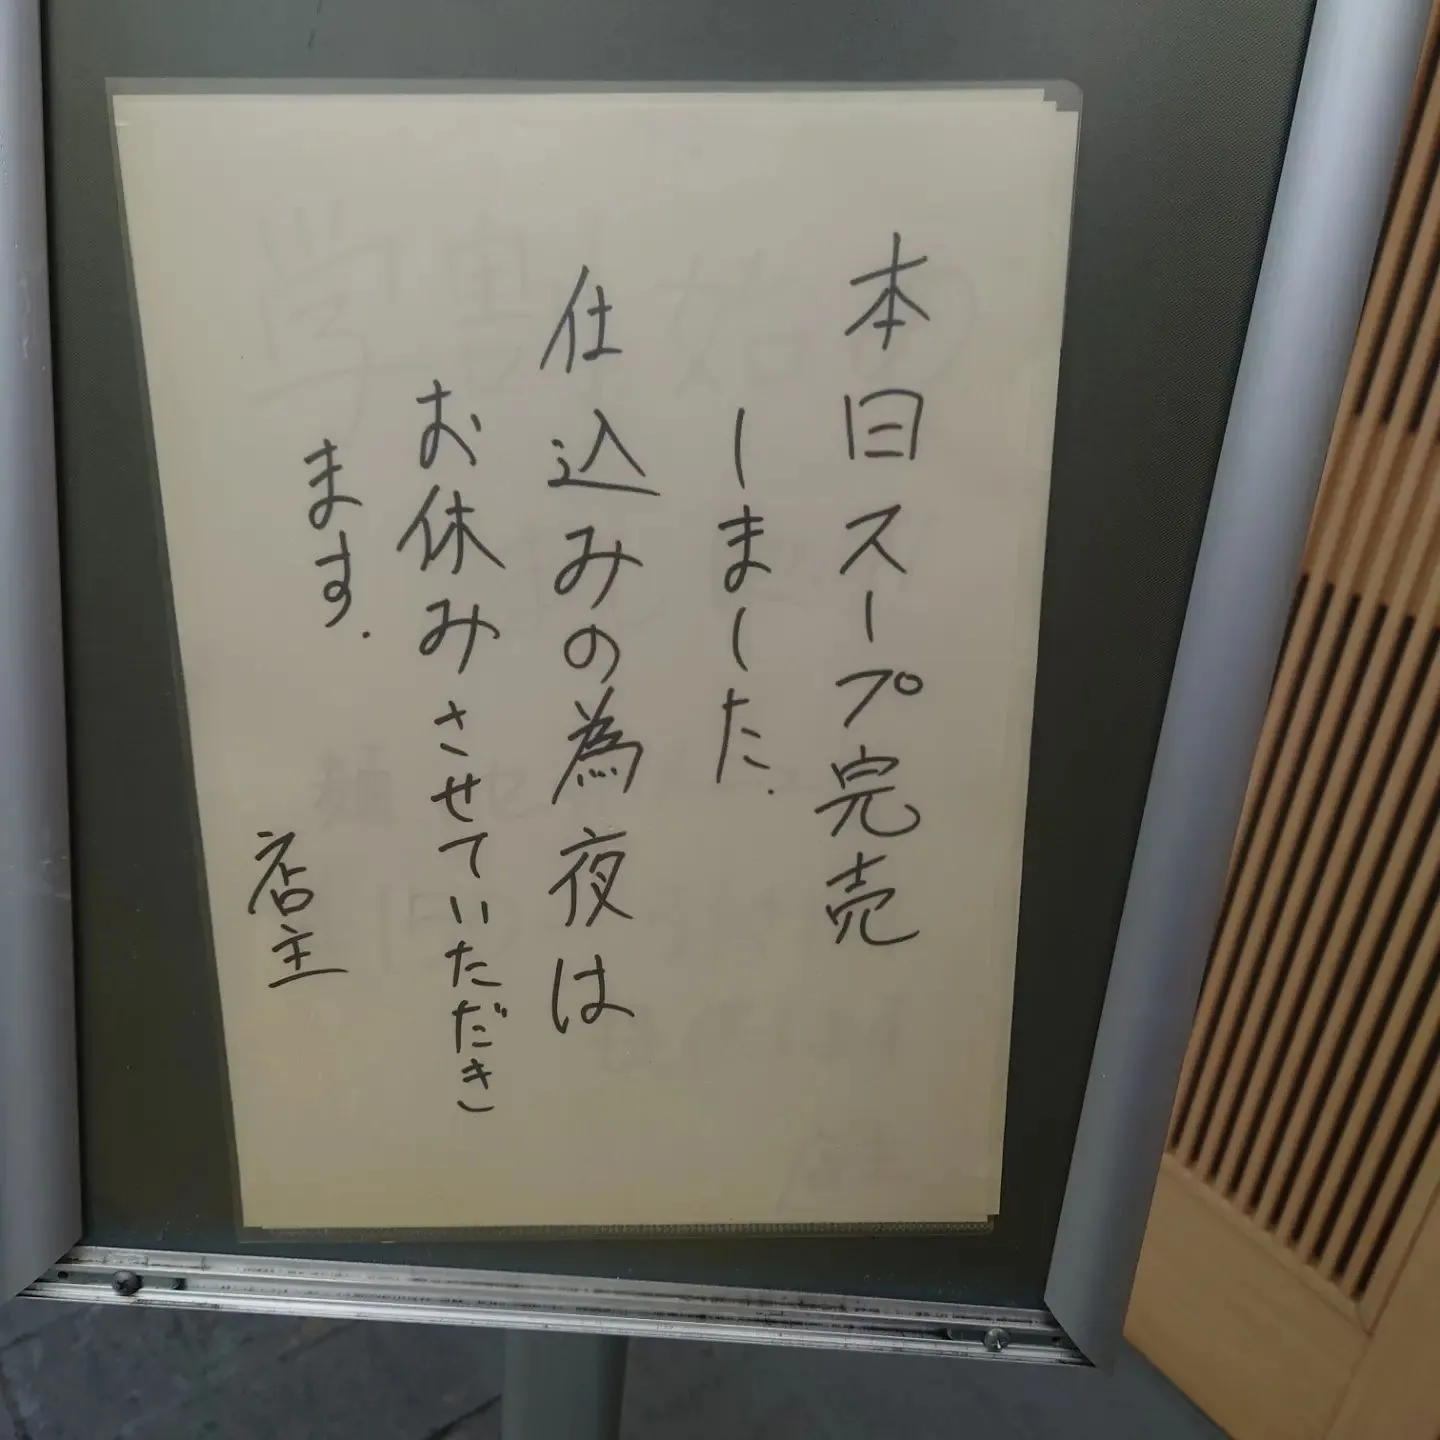 本日スープ完売
しました.
仕込みの為夜は
お休みさせていただき
ます.
店主